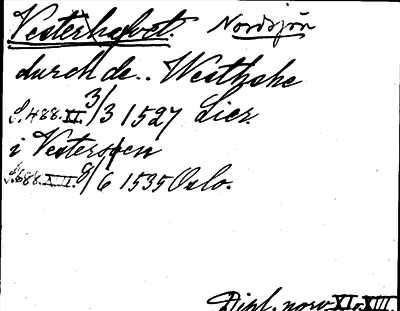 Vesterhavet. Nordsjön
durch de.. Westhshe
S. 488. XI. 3/3 1527 Lier.
i Vestersøen
S. 688. XIII. 9/6 1535 Oslo.
Dipl. norv. XI. XIII.